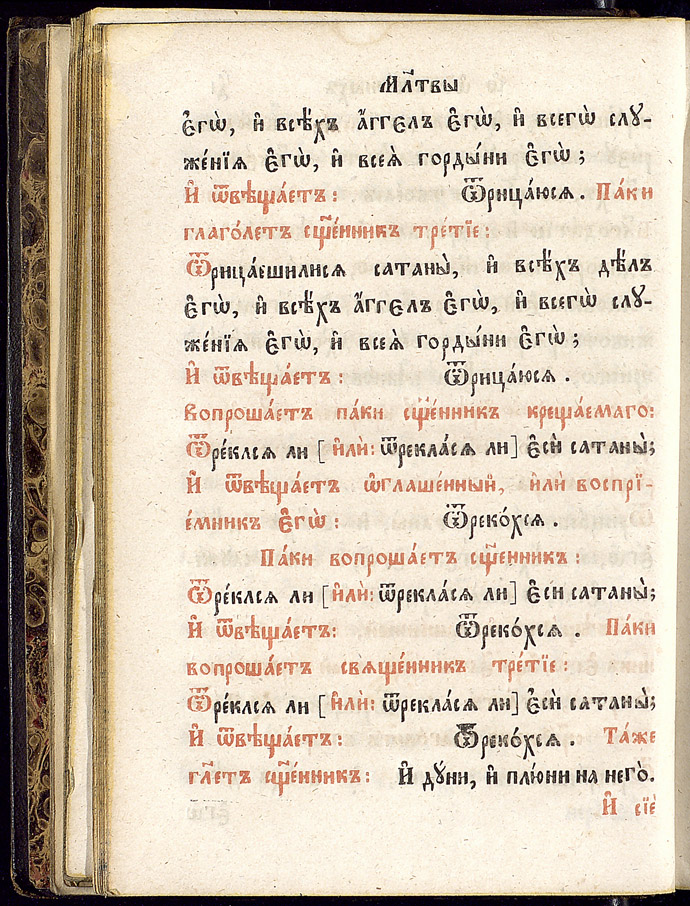 Мл҃твы
є҆гѡ̀, и҆ всѣ́хъ а҆́ггєлъ є҆гѡ̀, и҆ всегѡ̀ слꙋ-
же́нїѧ є҆гѡ̀, и҆ всеѧ̀ горды́ни є҆гѡ̀;
И҆ ѿвѣща́етъ: Ѿрица́юсѧ. Па́ки
глаго́летъ сщ҃е́нникъ тре́тїе:
Ѿрица́ешилисѧ сатаны̀, и҆ всѣ́хъ дѣ́лъ
є҆гѡ̀, и҆ всѣ́хъ а҆́ггєлъ є҆гѡ̀, и҆ всегѡ̀ слꙋ-
же́нїѧ є҆гѡ̀, и҆ всеѧ̀ горды́ни є҆гѡ̀;
И҆ ѿвѣща́етъ: Ѿрица́юсѧ.
Вопроша́етъ па́ки сщ҃е́нникъ креща́емаго:
Ѿре́клсѧ ли [и҆лѝ: ѿрекла́сѧ ли] є҆сѝ сатаны̀;
И҆ ѿвѣща́етъ ѡ҆глаше́нный, и҆лѝ воспрї-
е́мникъ є҆гѡ̀: Ѿреко́хсѧ.
Па́ки вопроша́етъ сщ҃е́нникъ:
Ѿре́клсѧ ли [и҆лѝ: ѿрекла́сѧ ли] є҆сѝ сатаны̀;
И҆ ѿвѣща́етъ: Ѿреко́хсѧ. Па́ки
вопроша́етъ свѧще́нникъ тре́тїе:
Ѿре́клсѧ ли [и҆лѝ: ѿрекла́сѧ ли] є҆сѝ сатаны̀;
И҆ ѿвѣща́етъ: Ѿреко́хсѧ. Та́же
гл҃етъ сщ҃е́нникъ: И҆ дꙋ́ни, и҆ плю́ни на него̀.
И҆ сїѐ